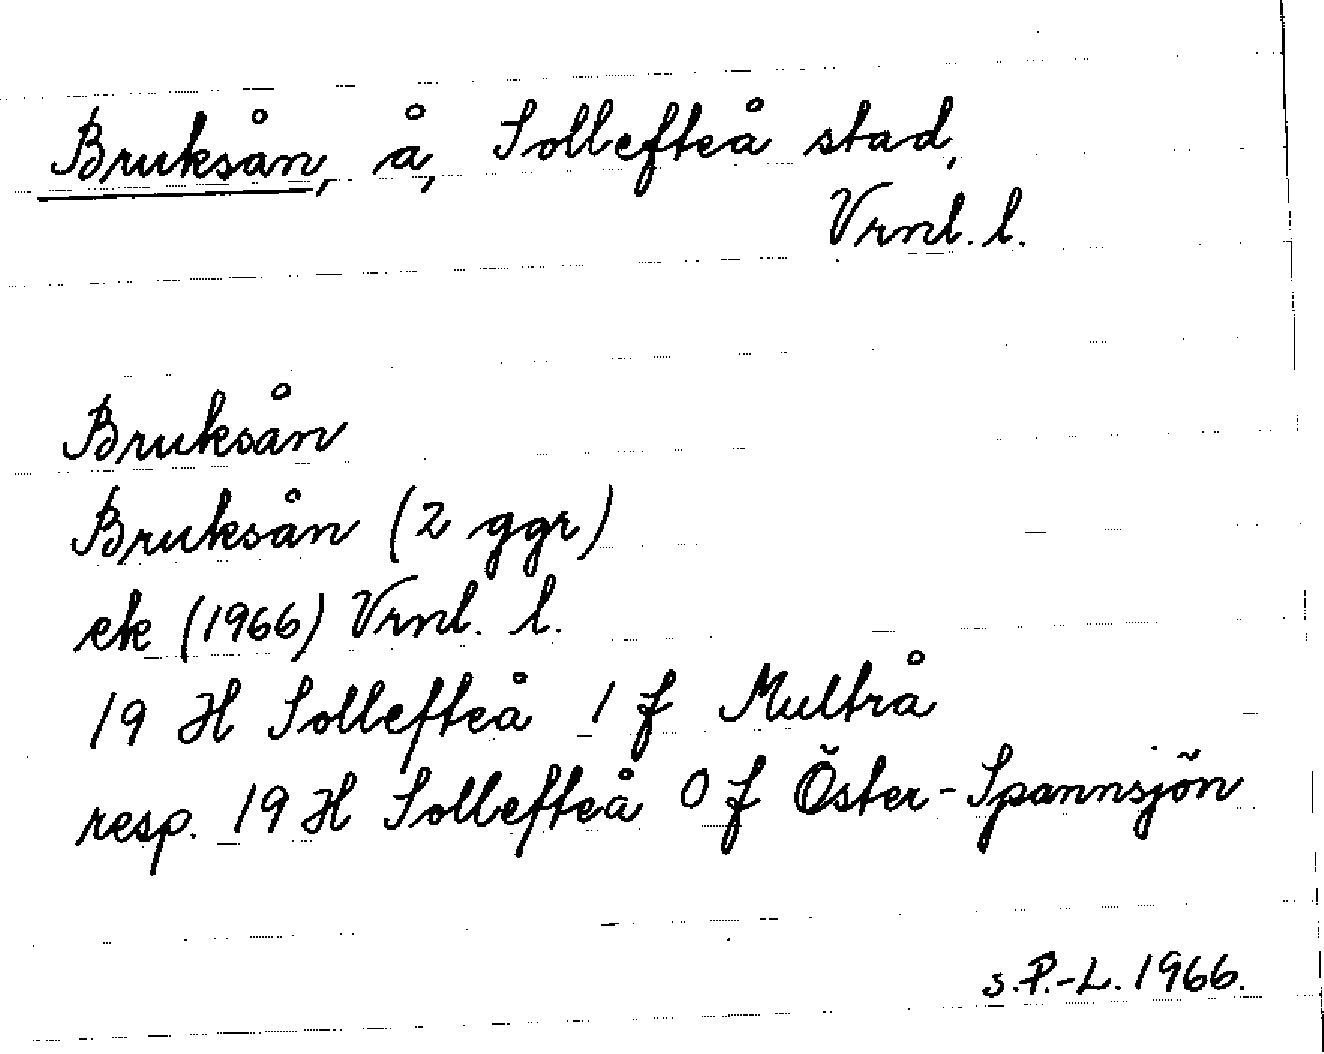 Bruksån, å, Sollefteå stad,
Vrnl. l.
Bruksån
Bruksån (2 ggr)
ek (1966) Vrnl. l.
19 H Sollefteå 1 f Multrå
resp. 19 H Sollefteå 0 f Öster-Spannsjön
s.P.-L. 1966.